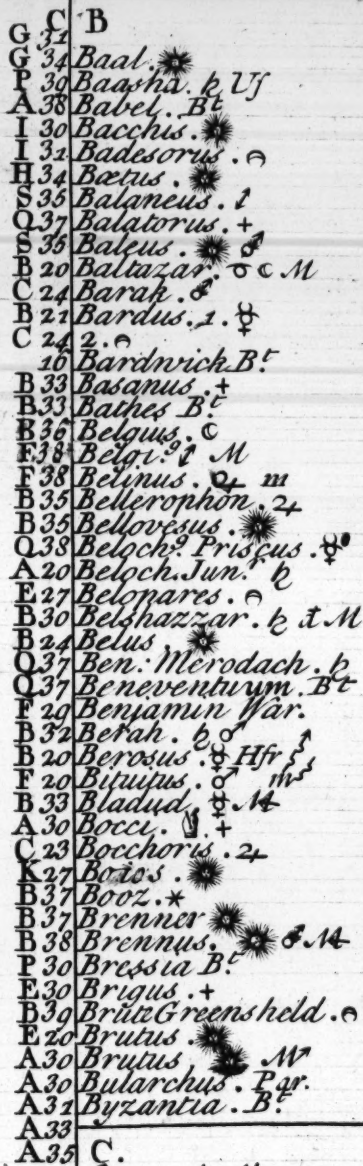 C B
G 31
G 34 Baal.
P 39 Baasha. ♄ Uſ
A 38 Babel. Bt
I 30 Bacchis.
I 31 Badesorus.
H 34 Bætus.
S 35 Balaneus.
Q 37 Balatorus. +
S 35 Baleus.
B 20 Baltazar. ☾ M
C 24 Barak. ♂
B 21 Bardus. 1. ☿
C 24 2.
16 Bardwick Bt
B 33 Basanus. +
B 33 Bathes Bt
B 36 Belgius. ☾
F 38 Belgi.9 M
F 38 Belinus. ♃ m
B 35 Bellerophon. ♃
B 35 Bellovesus.
Q 38 Beloch9 Priscus. ☿
A 20 Beloch. Junr ♄
E 27 Belopares.
B 30 Belshazzar. ♄ M
B 24 Belus.
Q 37 Ben: Merodach. ♄
Q 37 Beneventuum. Bt
F 29 Benjamin War.
B 32 Berah. ♄ ♂
B 20 Berosus. ☿ Hfr
F 20 Bituitus. ♂ m
B 33 Bladud ☿ M
A 30 Bocci. +
C 23 Bocchoris. ♃
K 27 Boios.
B 37 Booz. *
B 37 Brenner
B 38 Brennus. ♂ M
P 30 Bressia Bt
E 30 Brigus. +
B 39 Brute Greensheld.
E 20 Brutus.
A 30 Brutus M
A 30 Bularchus. Par.
A 31 Byzantia. Bt
A 33
A 35 C.